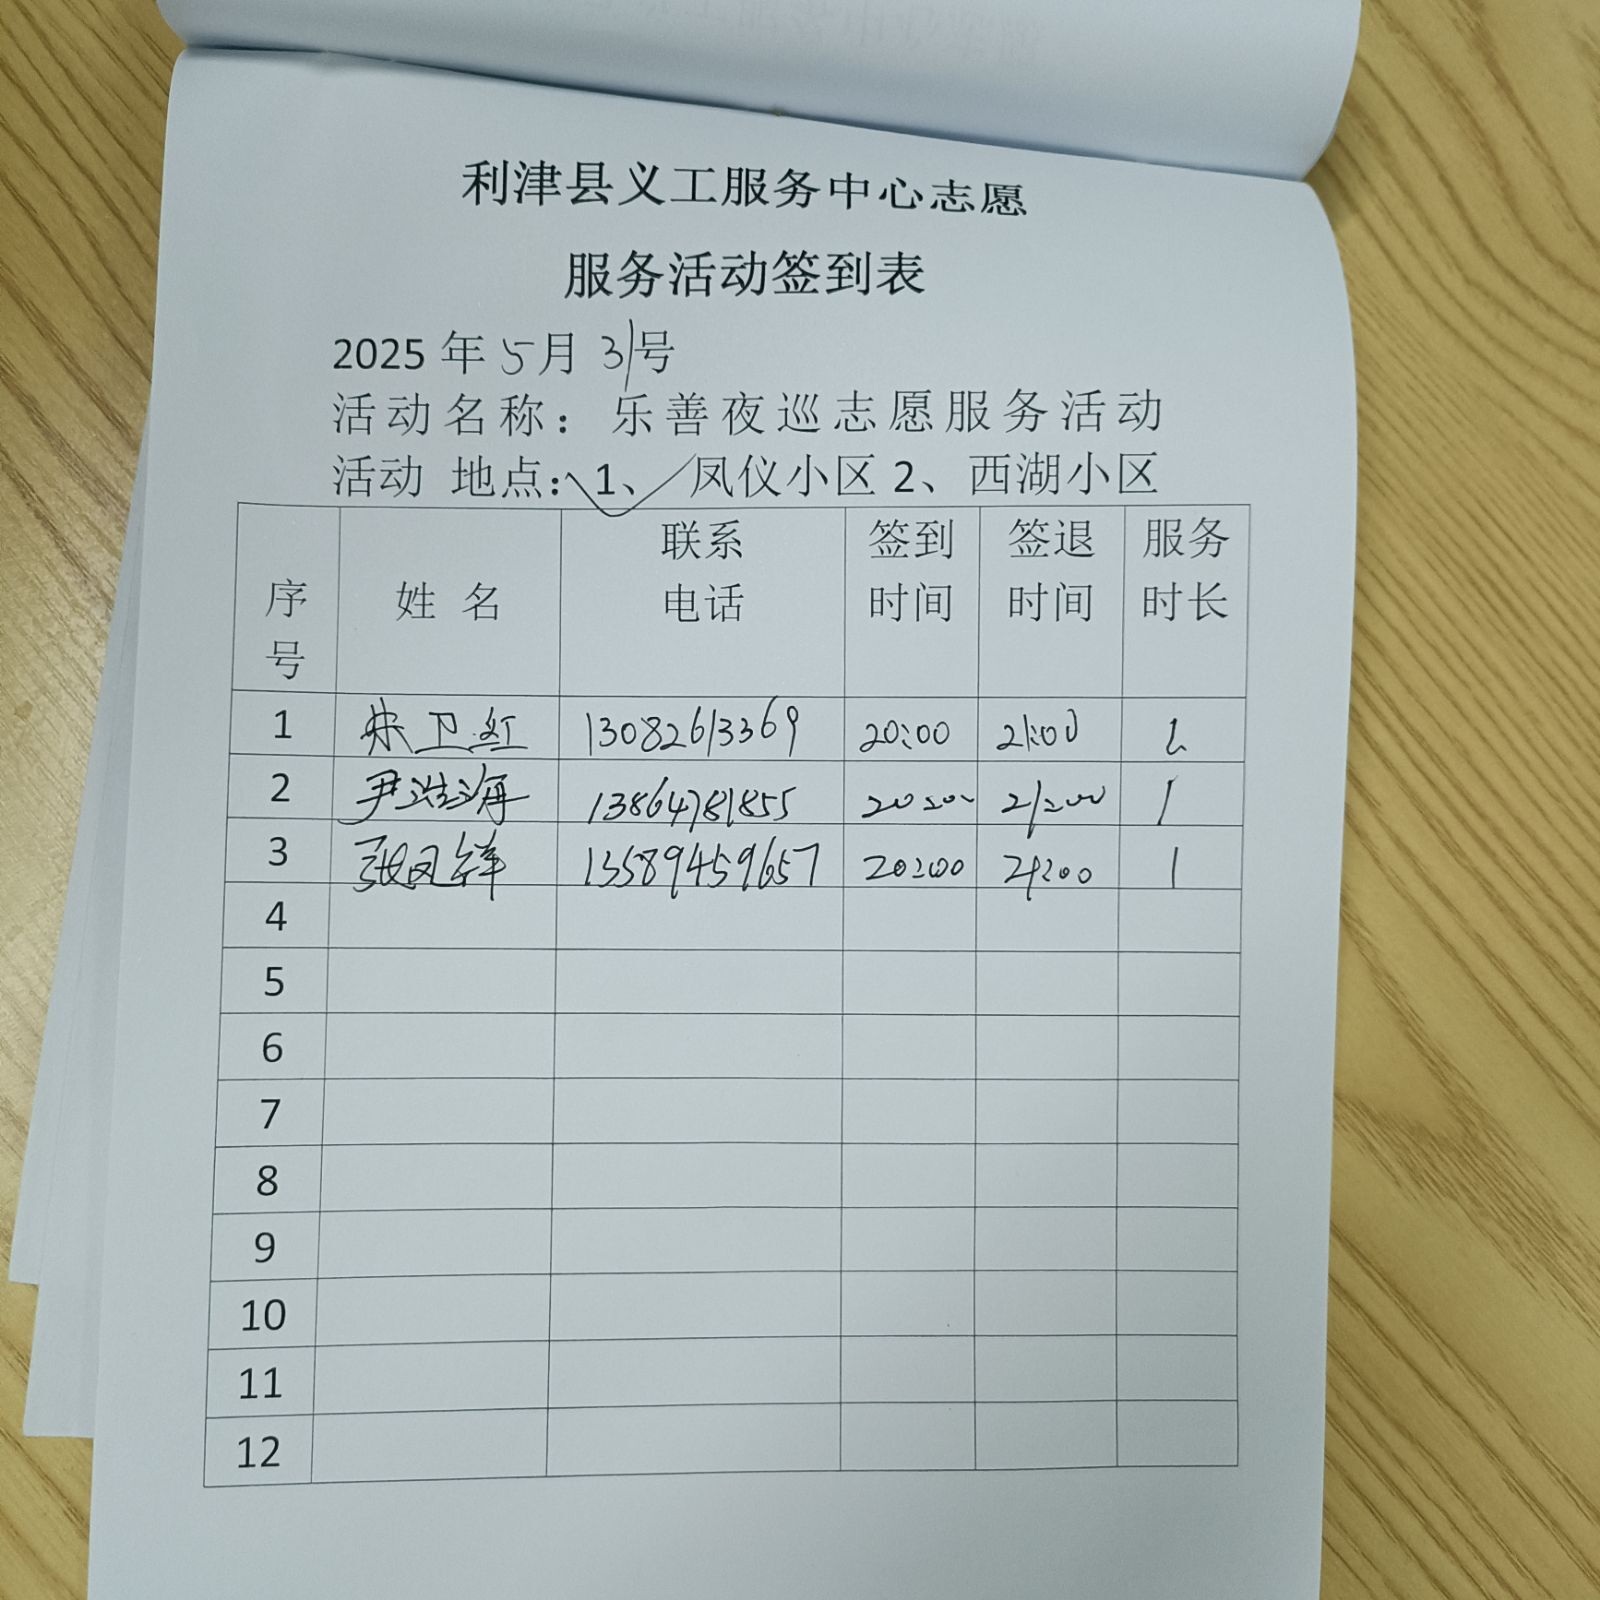 利津县义工服务中心志愿
服务活动签到表
2025 年 5 月 31 号
活动名称： 乐善夜巡志愿服务活动
活动 地点： 1、 凤仪小区 2、西湖小区
序号 姓名 联系电话 签到时间 签退时间 服务时长
1 卫红 13082613369 20:00 21:00
2 尹浩海 13864781855 20:00 21:00 1
3 张凤祥 13589459657 20:00 21:00 1
4
5
6
7
8
9
10
11
12